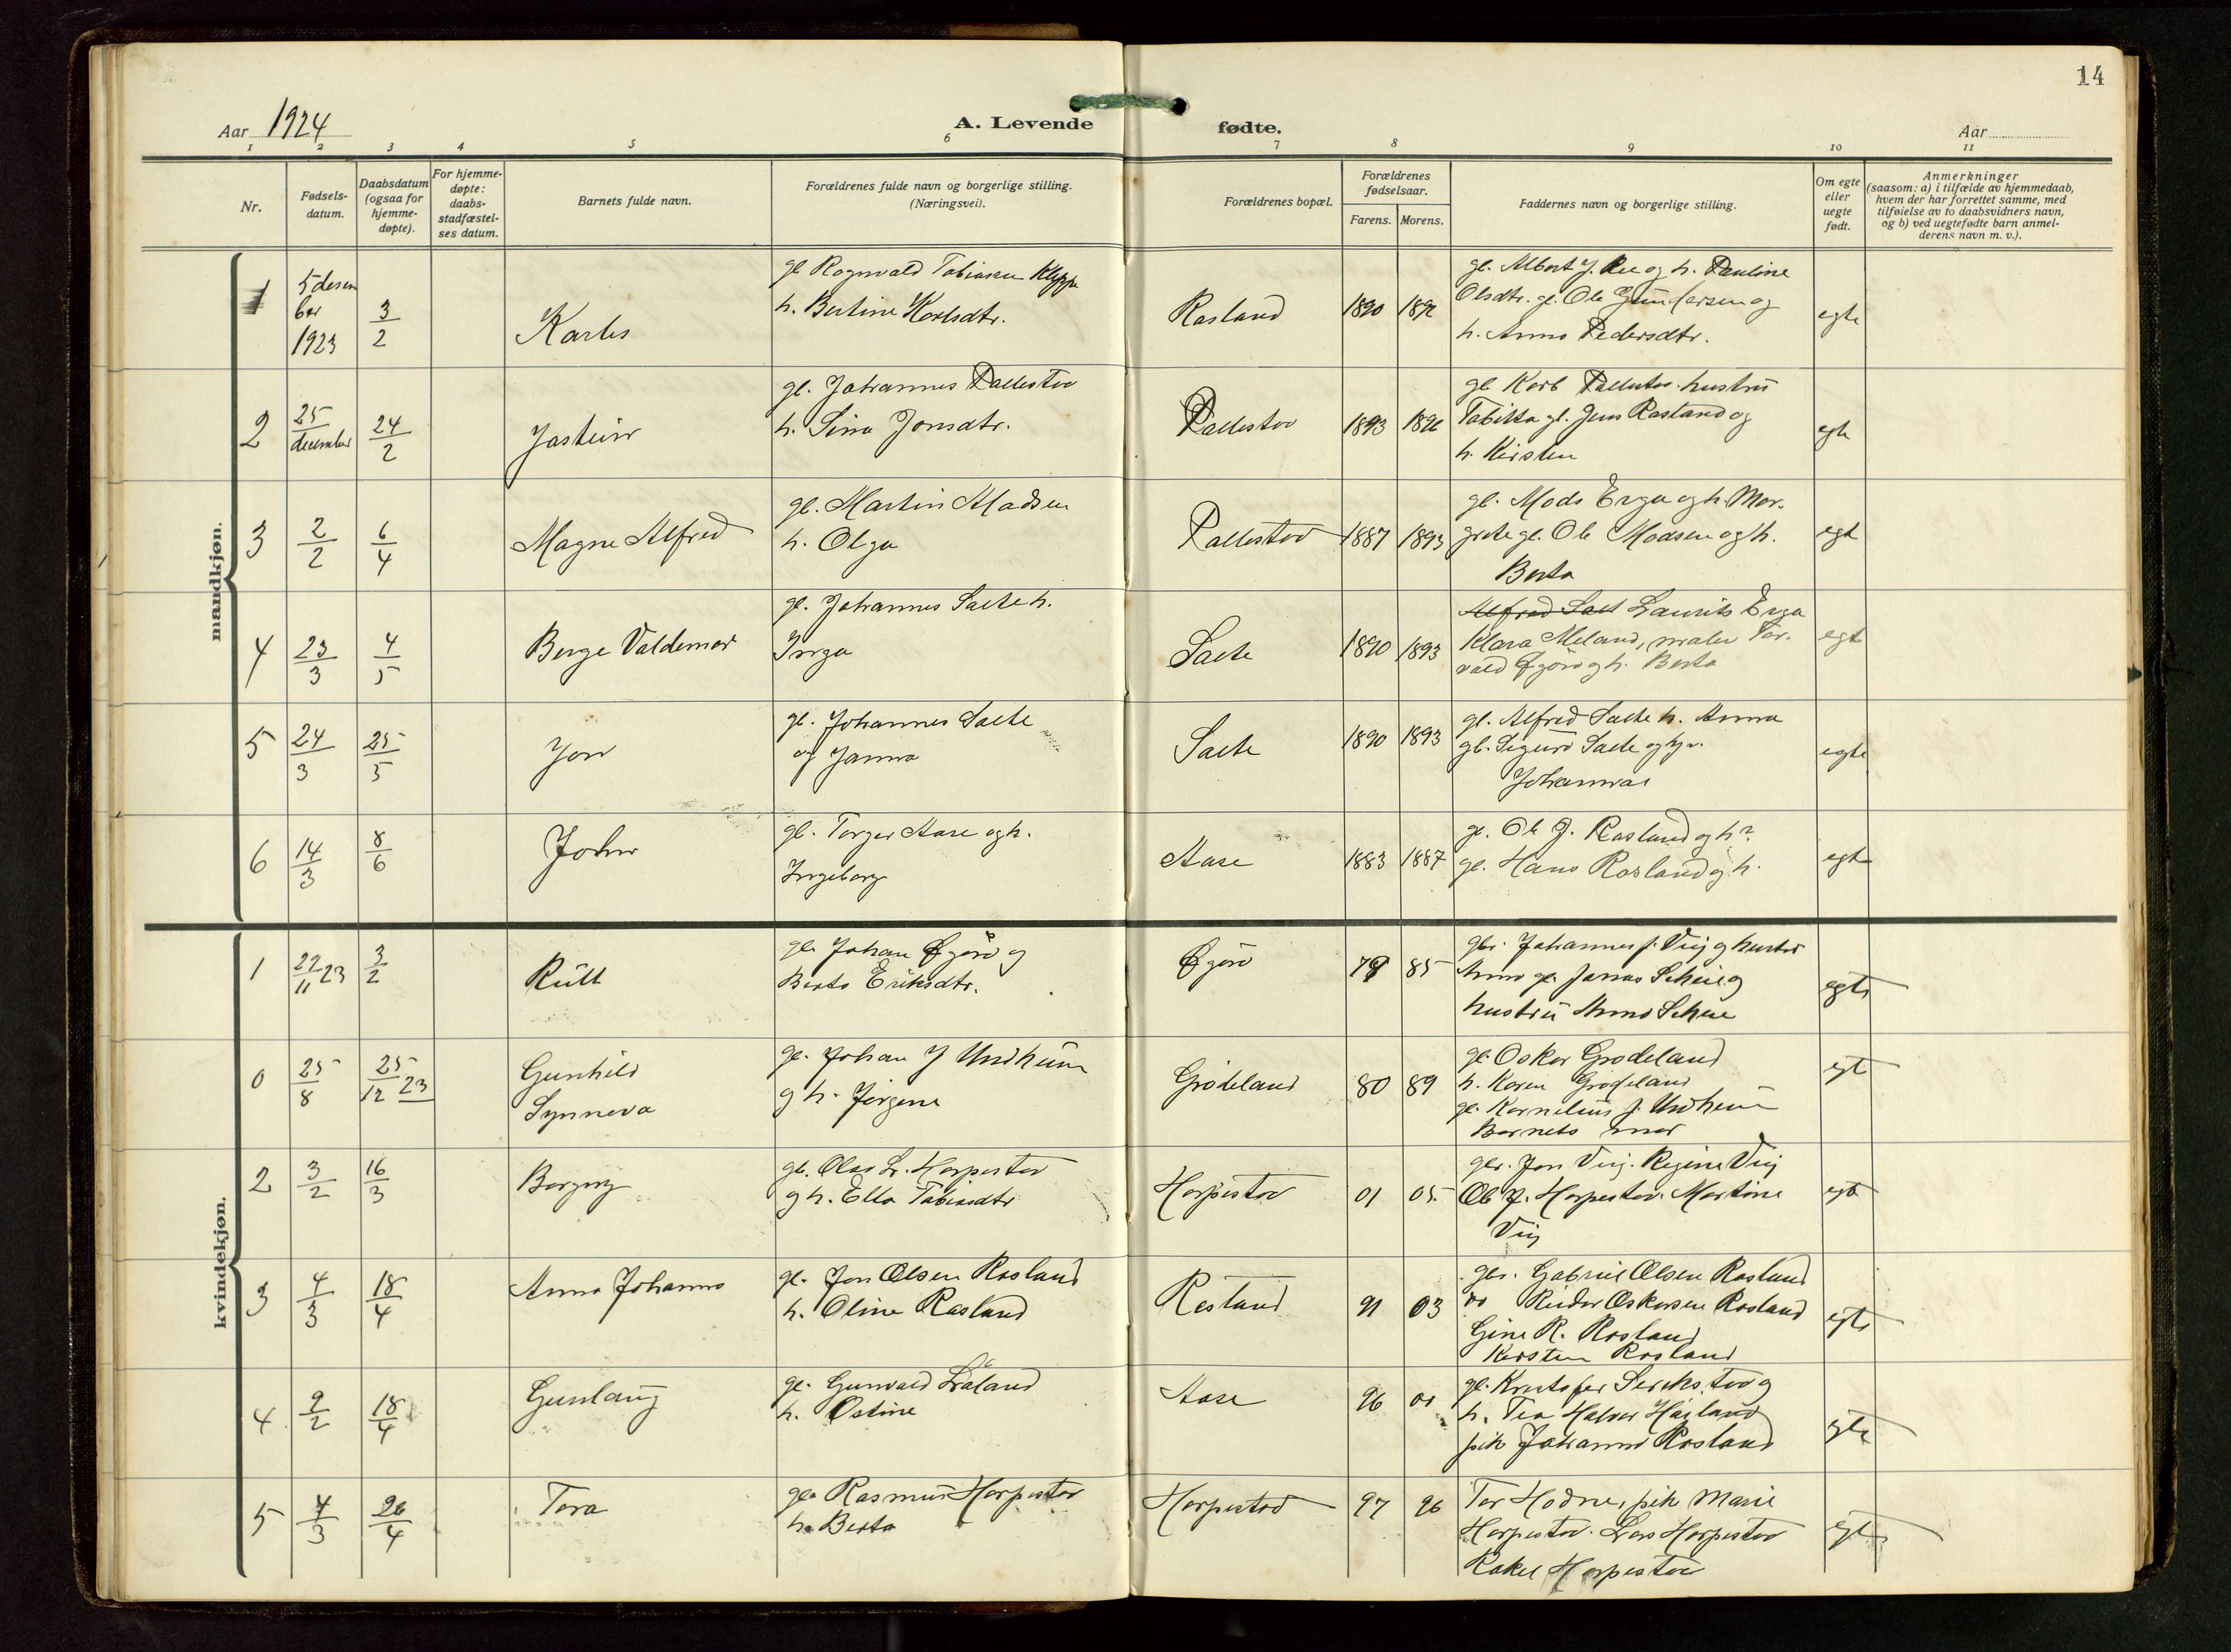 14
Aar 1924
A. Levende fødte.
Aar
1 2 3 4 5 6 7 8 9 10 11
Nr.
Fødsels-
datum.
Daabsdatum
(ogsaa for
hjemme-
døpte).
For hjemme-
døpte:
daabs-
stadfæstel-
ses datum.
Barnets fulde navn.
Forældrenes fulde navn og borgerlige stilling.
(Næringsvei).
Forældrenes bopæl.
Forældrenes
fødselsaar.
Farens. Morens.
Faddernes navn og borgerlige stilling.
Om egte
eller
uegte
født.
Anmerkninger
(saasom: a) i tilfælde av hjemmedaab,
hvem der har forrettet samme, med
tilføielse av to daabsvidners navn,
og b) ved uegtefødte barn anmel-
derens navn m. v.).
mandkjøn.
1
5 desem
ber
1923
3/2
Karles
gl Rognvald Tobiasen Klepp
h. Bertine Karlsdtr.
Rosland
1890
gl. Albert J. Ree og h. Pauline
Olsdtr. gl. Ole Gundersen og
h. Anna Pedersdtr.
egte
2
25/december
24/2
Jostein
gl. Johannes Pallestov
h. Sina Jonsdtr.
Pallestov
1893 1896
gl Karl Pallestov hustru
Tabitta gl. Jens Rosland og
h. Kirsten
egte
3
2/2
6/4
Magne Alfred
gl. Martin Madsen
h. Olga
Pallestov
1887 1893
gl. Mads Erga og h. Mar-
grete gl. Ole Madsen og h.
Berta
egte
4
23/3
4/5
Berge Valdemar
gl. Johannes Saele h.
Inga
Saele
1890 1893
Alfred Saele Laurits Erga
Klara Meland, maler Tor-
vald Øgård og h. Berta
egte
5
24/3
25/5
Jon
gl. Johannes Saele
og Janna
Saele
1890 1893
gl. Alfred Saele h. Anna
gl. Sigurd Saele og
Johanna
egte
6
14/3
8/6
John
gl. Torger Aase og h.
Ingeborg
Aase
1883 1887
gl. Ole J. Rosland og h?
gl. Hans Rosland og h.
egte
kvindekjøn.
1
22/11 23
3/2
Rutt
gl. Johan Øgård og
Berta Eriksdtr.
Øgård
79 85
gbr. Johannes J. Vig og hustru
Anna gl. Jonas Scheie og
hustru Anna Scheie
egte
0
25/8
25/12 23
Gunhild
Synneva
gl. Johan J Undheim
og h. Jørgine
Grødeland
80 89
gl. Oskar Grødeland
h. Karen Grødeland
gl. Kornelius J. Undheim
Barnets mor
egte
2
3/2
16/3
Borgny
gl. Olas Lr. Horpestov
og h. Ella Tobiasdtr
Horpestov
01 05
gbr. Jon Vig. Regine Vig
Ole J. Horpestov. Martine
Vig
egte
3
4/3
18/4
Anna Johanna
gl. Jon Olsen Rosland
h. Oline Rosland
Rosland
91 03
gbr. Gabriel Olsen Rosland
do Reidar Oskarsen Rosland
Gine R. Rosland
Kirsten Rosland
egte
4
9/2
18/4
Gunlaug
gl. Gunvald Låland
h. Ostine
Aase
96 01
gl. Kristofer Serikstov og
h. Tea Halvor Håland
pik Johanna Rosland
egte
5
4/3
26/4
Tora
gl. Rasmus Horpestov
h. Berta
Horpestov
97 96
Tor Hodne, pik Marie
Horpestov. Lars Horpestov
Rakel Horpestov
egte